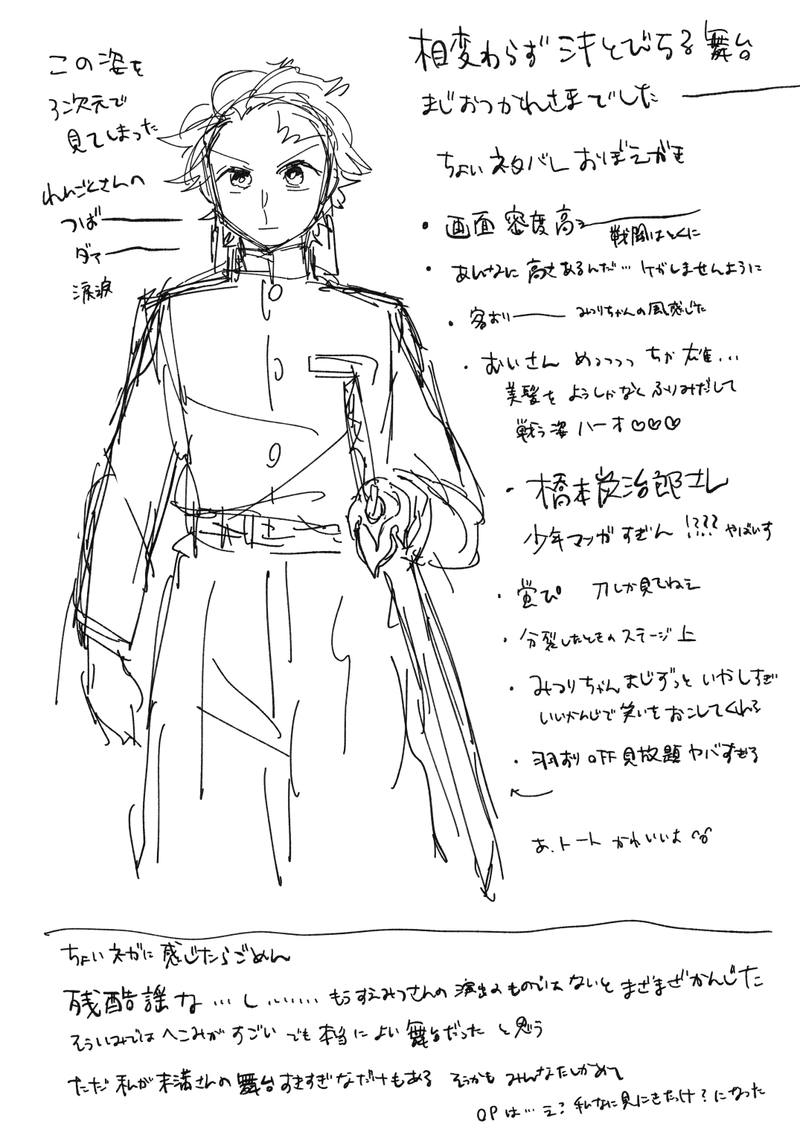 この姿を
3次元で
見てしまった
れんごくさんの
つばーー
ダマーー
涙涙
相変わらず シキとびちる 舞台
まじおつかれさまでした ーー
ちょい ネタバレ おぼえがき
・画面 密度高ぇーー
戦闘はとくに
・あんなに 高さあるんだ… ケガしませんように
・客おりーー みつりちゃんの風感じた
・むいさん めっっっっ ちゃ 雄...
美髪を ようしゃなく ふりみだして
戦う姿 ハーオ♡♡♡
・橋本 治郎さん
少年マンガ すぎん !??? やばいす
・蛍ぴ 刀しか見てねェ
・分裂したときの ステージ上
・みつりちゃん まじずっと いやしすぎ
いいかんじで 笑いを おこしてくれる
・羽おり OFF 見放題 ヤバすぎる
あ、トート かわいいよ
ちょい ネガに 感じたらごめん
残酷謡な … し ……… もうすえみつさんの 演出のものではないと まざまざかんじた
そういみでは へこみが すごい でも 本当に よい 舞台だった と思う
ただ 私が末満さんの 舞台すきすぎなだけもある そうかも みんなたしかめて
OPは… え? 私なに見にきたっけ? になった